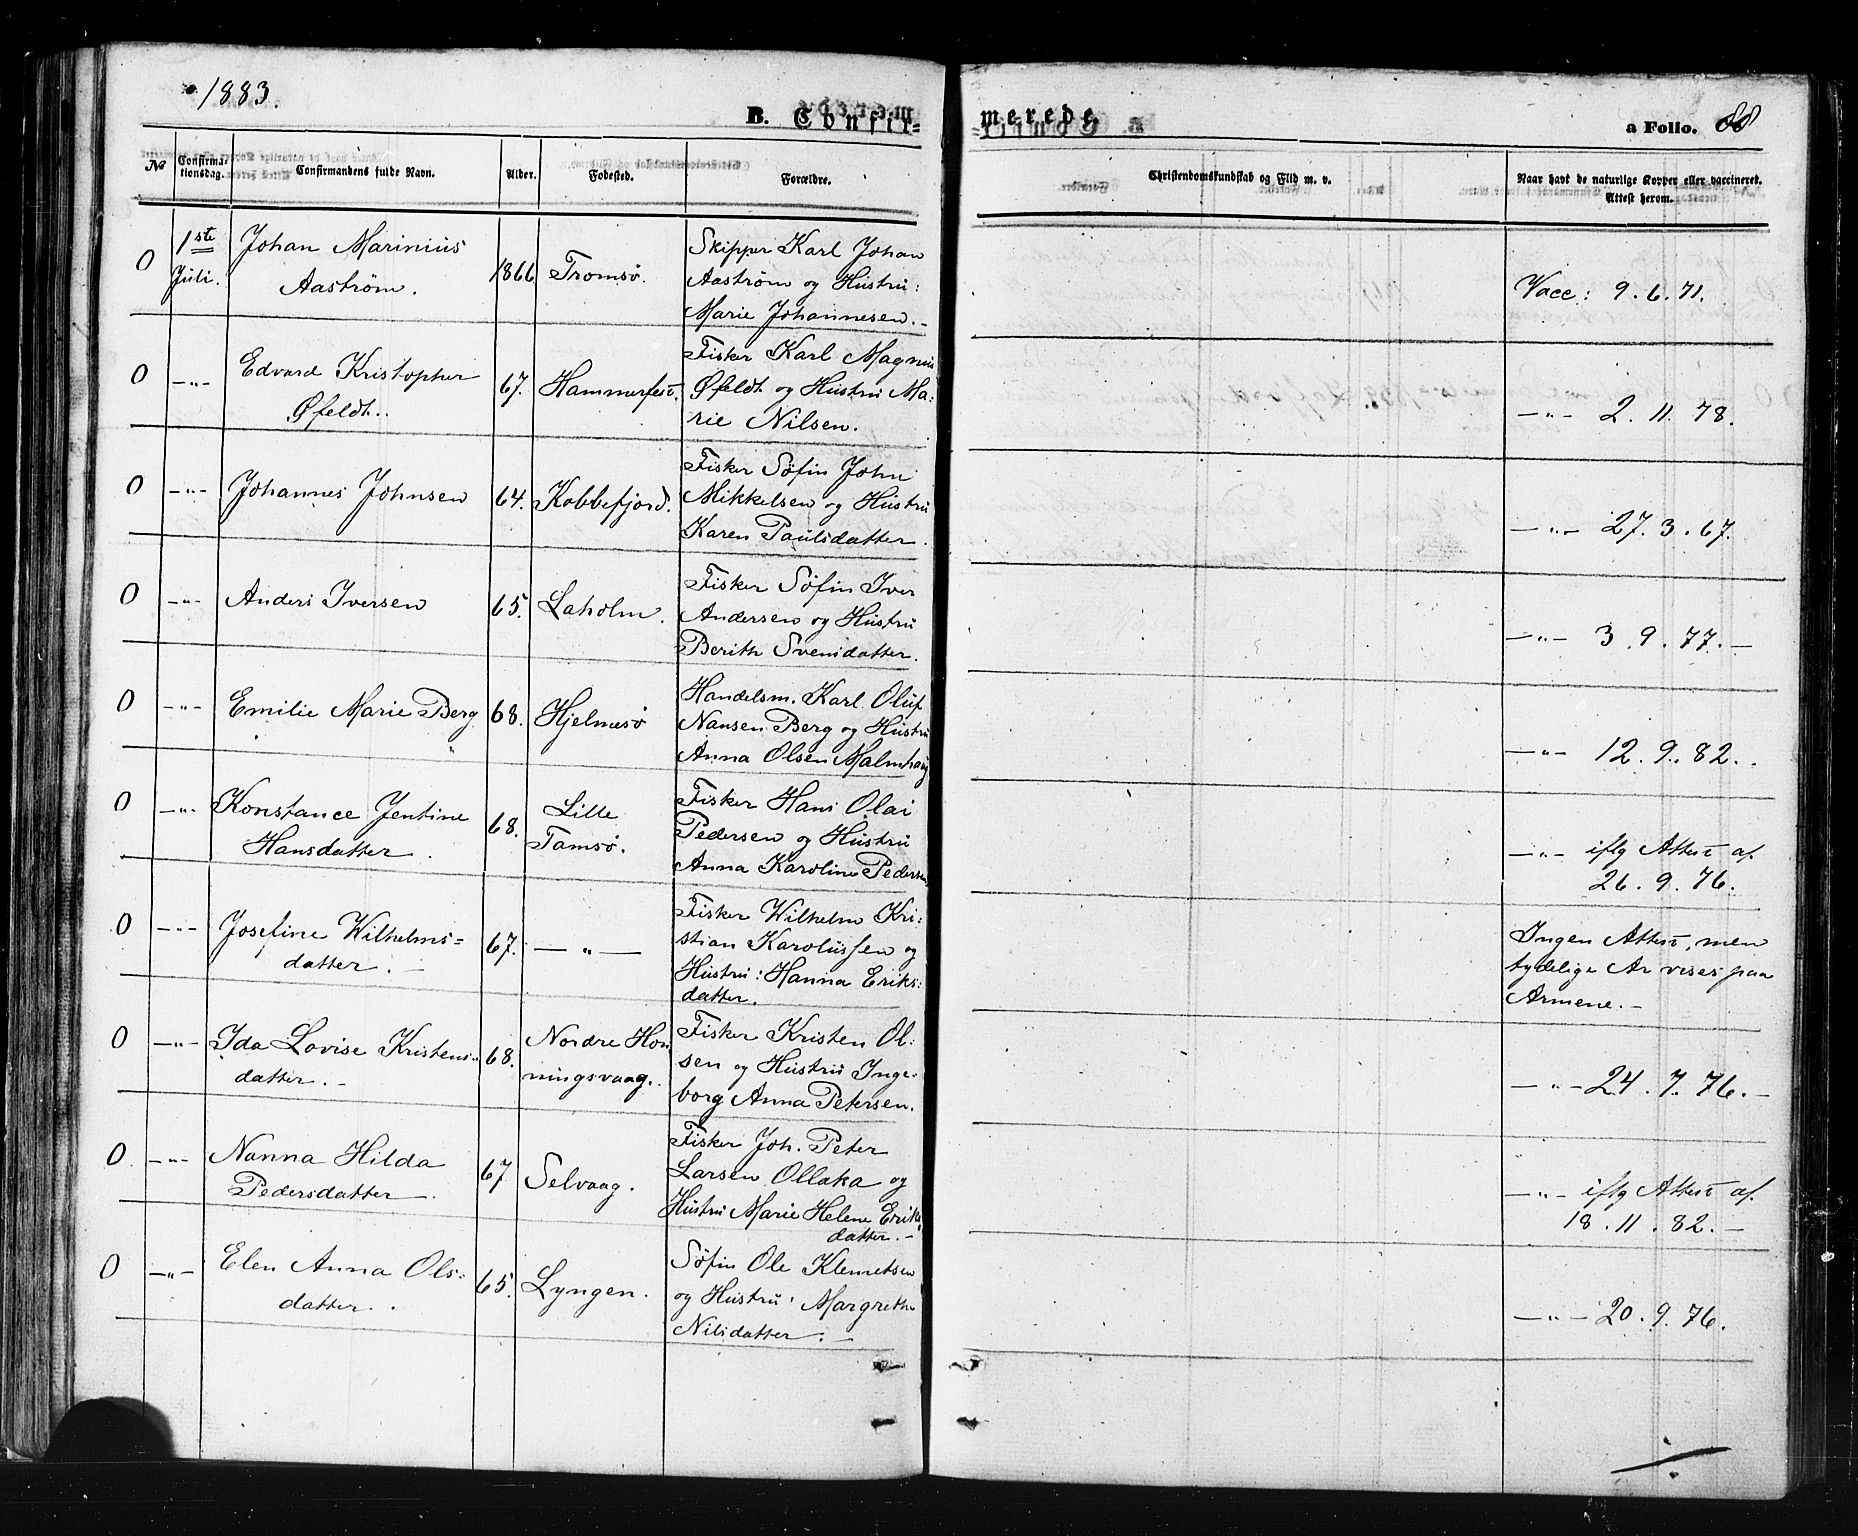 1883.
B. Confir-
merede.
a Folio. 88
No
Confirma-
tionsdag.
Confirmandens fulde Navn.
Alder.
Fødested.
Forældre.
Christendomskundskab og Flid m. v.
Naar havt de naturlige Kopper eller vaccineret.
Attest herom.
0
1ste
Juli.
Johan Marinius
Aastrøm.
1866
Tromsø.
Skipper Karl Johan
Aastrøm og Hustru:
Marie Johannesen.-
Vacc: 9.6.71.
0
-"-
Edvard Kristopher
Øfeldt.
67.
Hammerfest.
Fisker Karl Magnus
Øfeldt og Hustru Ma:
rie Nilsen.
-"- 2.11.78.
0
-"-
Johannes Johnsen
64.
Kobbefjord.
Fisker Søfin John
Mikkelsen og Hustru
Karen Paulsdatter.
-"- 27.3.67.
0
-"-
Anders Iversen
65.
Laholm.
Fisker Søfin Iver
Andersen og Hustru
Berith Svensdatter.
-"- 3.9.77.-
0
-"-
Emilie Marie Berg
68.
Hjelmesø
Handelsm. Karl Oluf
Nansen Berg og Hustru
Anna Olsen Malmhaug
-"- 12.9.82.
0
-"-
Konstance Jentine
Hansdatter.
68.
Lille
Tamsø.
Fisker Hans Olai
Pedersen og Hustru
Anna Karoline Pedersen
-"- iflg Attest af
26.9.76.
0
-"-
Josefine Wilhelms=
datter.-
67.
-"-
Fisker Wilhelm Kri:
stian Karolussen og
Hustru: Hanna Eriks:
datter.
Ingen Attest, men
tydelige Ar vises paa
Armene.-
0
-"-
Ida Lovise Kristens-
datter.-
68.
Nordre Hon
ningsvaag.
Fisker Kristen Ol:
sen og Hustru Inge:
borg Anna Petersen.
-"- 24.7.76.-
0
-"-
Nanna Hilda
Pedersdatter.
67
Selvaag.
Fisker Joh. Peter
Larsen Ollaka og
Hustru Marie Helene Eriks
datter.-
-"- iflg Attest af
18.11.82.-
0
-"-
Elen Anna Ols-
datter.
65.
Lyngen.
Søfin Ole Klemetsen
og Hustru: Margrethe
Nilsdatter.-
-"- 20.9.76.